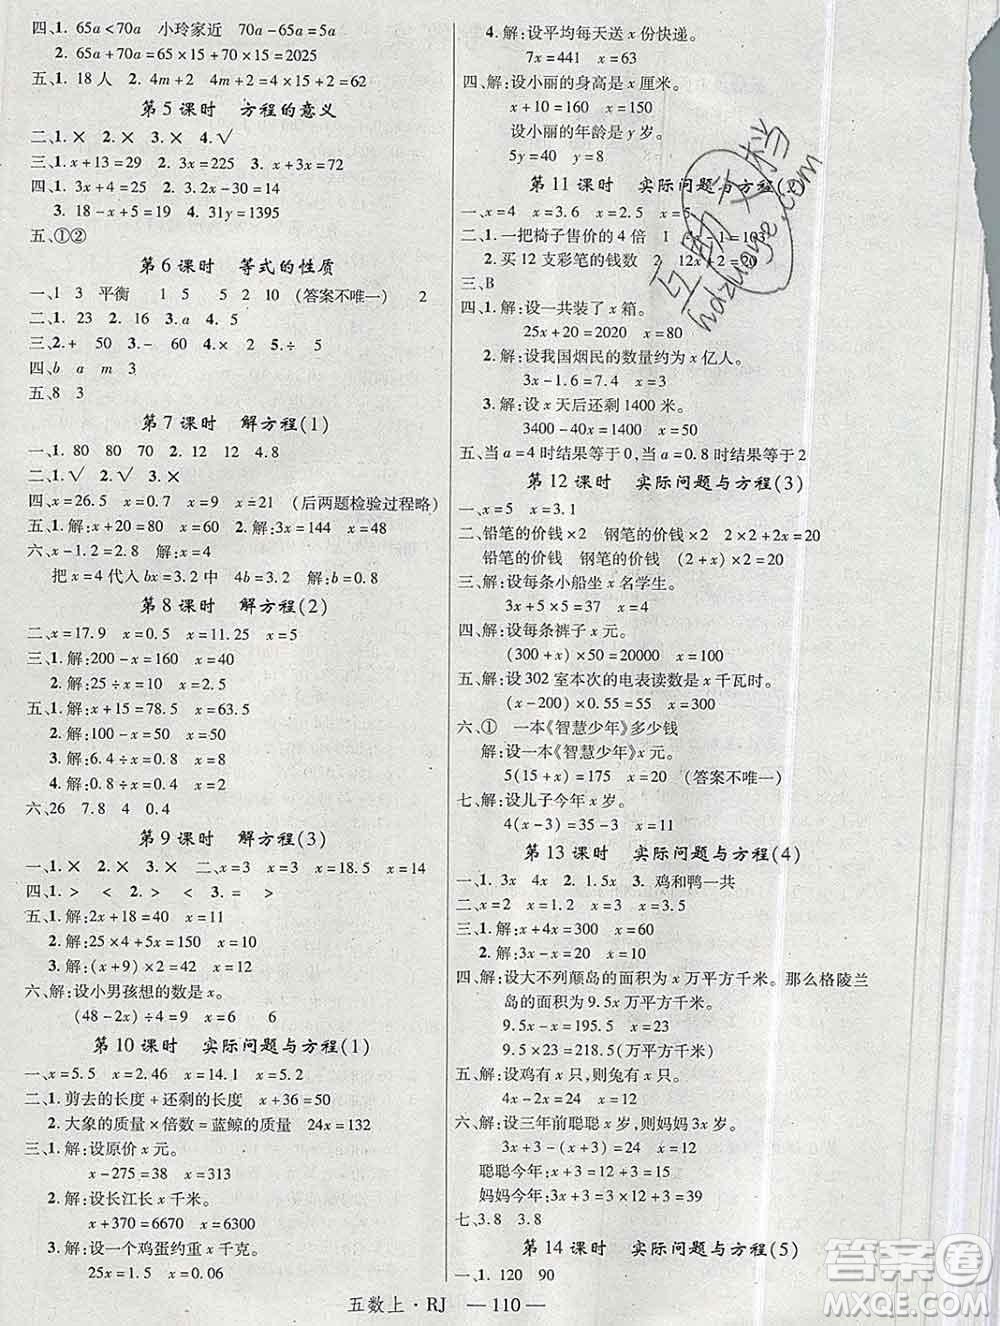 四、1. 65a<70a 小玲家近 70a-65a=5a
2. 65a+70a=65×15+70×15=2025
五、1. 18人 2. 4m+2 4m+2=4×15+2=62
第5课时 方程的意义
二、1.× 2.× 3.× 4.√
三、1. x+13=29 2. 3x=225 3. x+3x=72
四、1. 3x+4=25 2. 2x-30=14
3. 18-x=5 4. 31y=1395
五、①②
第6课时 等式的性质
一、1 3 平衡 1 5 5 2 10 (答案不唯一) 2
二、1. 23 2. 16 3. 8 4. 15
三、2. + 50 3. - 60 4. × 46 5. ÷ 5
四、b a m 3
五、8 3
第7课时 解方程(1)
一、1. 80 80 70 2. 12 12 4.8
二、1.√ 2.√ 3.×
四、x=26.5 x=0.7 x=9 x=21 (后两题检验过程略)
五、1. 解:x+20=80 x=60 2. 解:3x=144 x=48
六、x-1.2=2.8 解:x=4
把 x=4 代入 bx=3.2 中 4b=3.2 解:b=0.8
第8课时 解方程(2)
二、x=17.9 x=0.5 x=11.25 x=5
三、1. 解:200-x=160 x=40
2. 解:25÷x=10 x=2.5
五、1. 解:x+15=78.5 x=63.5
2. 解:100-x=50 x=50
3. 解:6.4÷x=0.8 x=8
4. 解:0.8÷x=0.4 x=2
六、26 7.8 4 0.4
第9课时 解方程(3)
一、1.× 2.× 3.× 二、x=3 x=3 x=18.5 x=14
四、1. > < 2. > < 3. = >
五、1. 解:2x+18=40 x=11
2. 解:25×4+5x=150 x=10
3. 解:(x+9)×2=42 x=12
六、解:设小男孩想的数是 x。
(48-2x)÷4=9 x=6 6
第10课时 实际问题与方程(1)
一、x=5.5 x=2.46 x=14 x=5.2
二、1. 剪去的长度+还剩的长度 x+36=50
2. 大象的质量×倍数=蓝鲸的质量 24x=132
三、1. 解:设原价 x 元。
x-275=38 x=313
2. 解:设长江长 x 千米。
x+370=6670 x=6300
3. 解:设一个鸡蛋约重 x 千克。
25x=1.5 x=0.06
4. 解:设平均每天送 x 份快递。
7x=441 x=63
四、解:设小丽的身高是 x 厘米。
x+10=160 x=150
设小丽的年龄是 y 岁。
5y=40 y=8
第11课时 实际问题与方程(2)
一、x=4 x=3.6 x=2.5 x=5
二、1. 一把椅子售价的4倍 1
2. 买12支彩笔的钱数 2 12x+2=20
三、B
四、1. 解:设一共装了 x 箱。
25x+20=2020 x=80
2. 解:设我国烟民的数量约为 x 亿人。
3x-1.6=7.4 x=3
3. 解:设 x 天后还剩1400米。
3400-40x=1400 x=50
五、当 a=4 时结果等于0,当 a=0.8 时结果等于2
第12课时 实际问题与方程(3)
一、x=5 x=3.1
二、铅笔的价钱×2 钢笔的价钱×2 2×2+2x=20
铅笔的价钱 钢笔的价钱 (2+x)×2=20
三、解:设每条小船坐 x 名学生。
3x+5×6=42 x=4
四、解:设每条裤子 x 元。
(300+x)×50=20000 x=100
五、解:设302室本次的电表读数是 x 千瓦时。
(x-200)×0.55=55 x=300
六、① 一本《智慧少年》多少钱
解:设一本《智慧少年》x 元。
5(15+x)=175 x=20 (答案不唯一)
七、解:设儿子今年 x 岁。
4(x-3)=35-3 x=11
第13课时 实际问题与方程(4)
一、1. 3x 4x 2. 1.5x 3. 鸡和鸭一共
二、x=2 x=2 x=3.5
三、1. 解:x+4x=300 x=60
2. 解:3x-x=20 x=10
四、解:设大不列颠岛的面积为 x 万平方千米。那么格陵兰
岛的面积为 9.5x 万平方千米。
9.5x-x=195.5 x=23
9.5x=9.5×23=218.5(万平方千米)
五、解:设鸡有 x 只,则兔有 x 只。
4x-2x=24 x=12
六、解:设三年前聪聪 x 岁,则妈妈 3x 岁。
3x+3-(x+3)=24 x=12
聪聪今年:x+3=12+3=15
妈妈今年:3x+3=3×12+3=39
七、3.8 3.8
第14课时 实际问题与方程(5)
一、1. 120 90
五数上·RJ —110—
互助文档
hdzuoye.com
答案圈
MXQE.COM